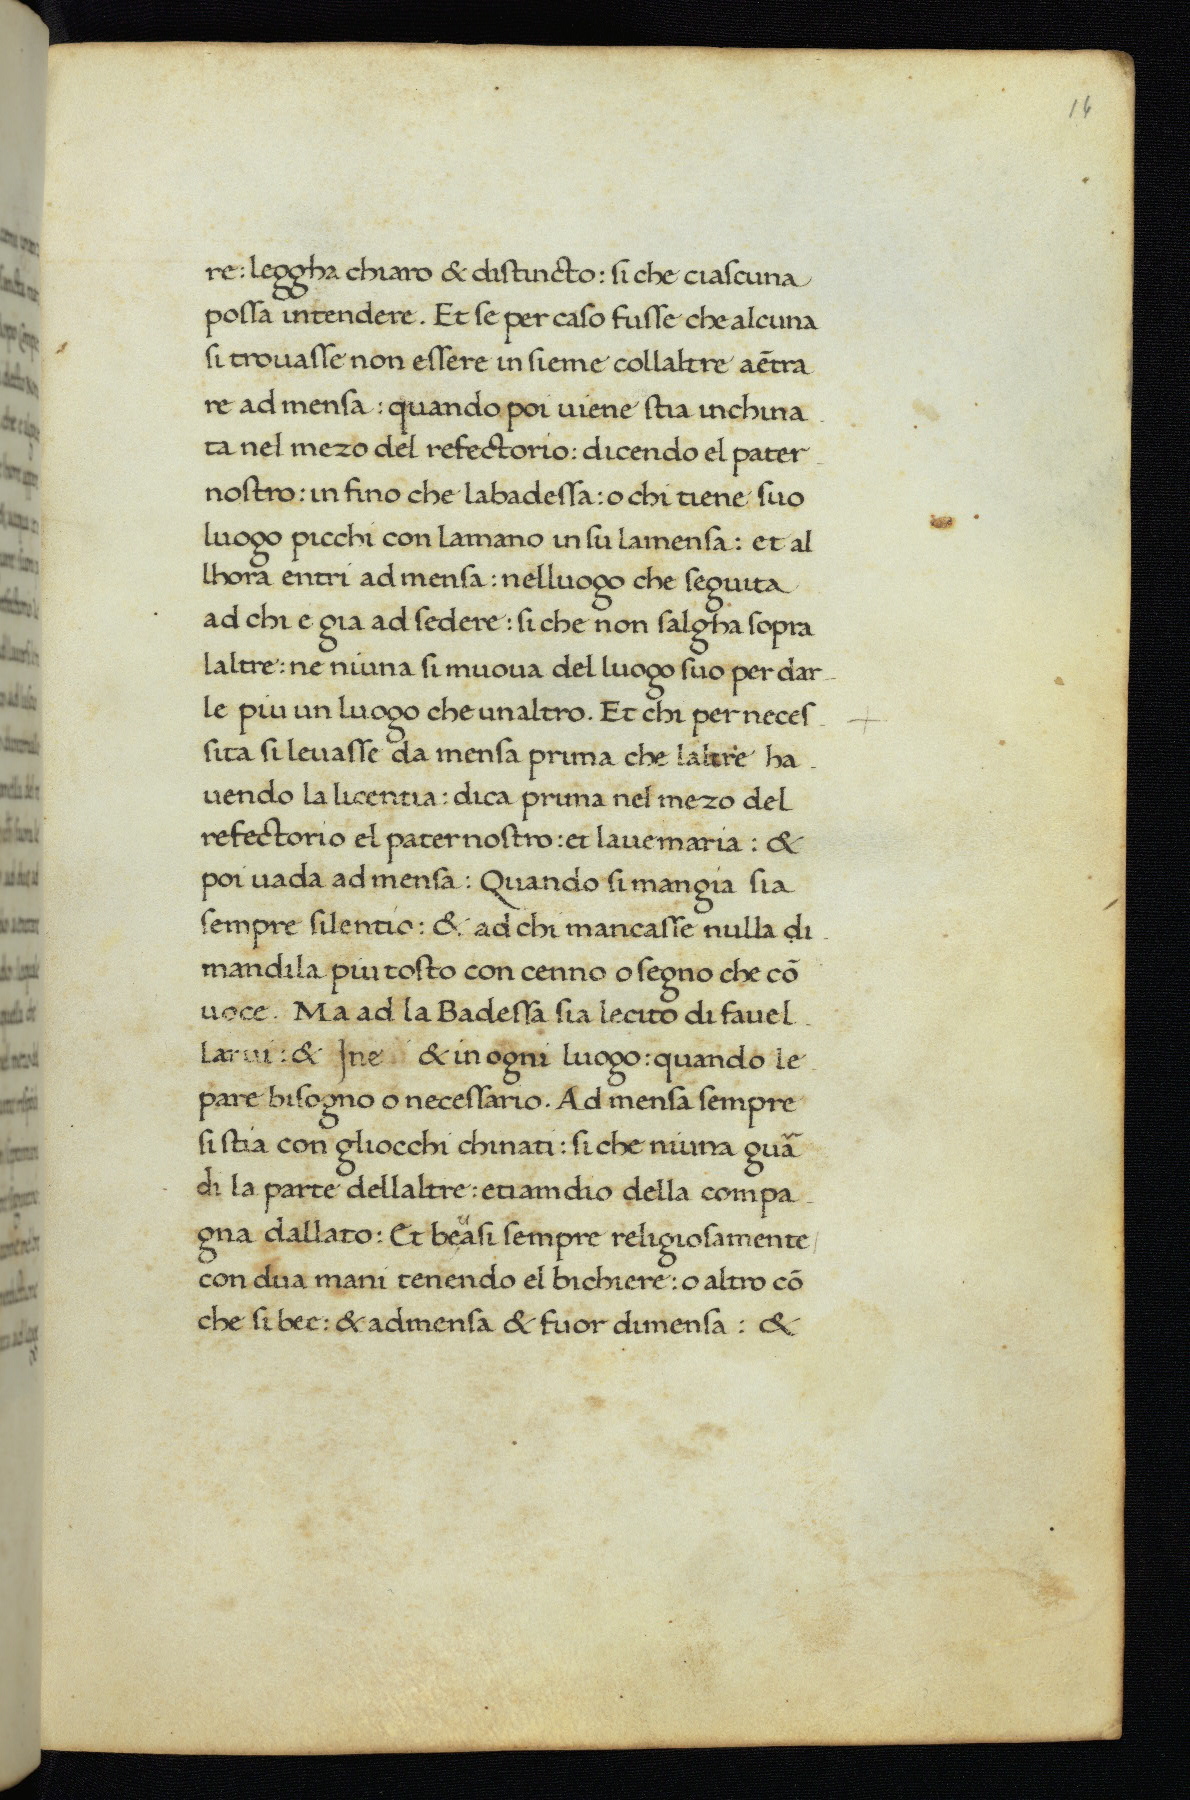 16
re: leggha chiaro & distincto: si che ciascuna
possa intendere. Et se per caso fusse che alcuna
si trouasse non essere in sieme collaltre aẽtra
re ad mensa: quando poi uiene stia inchina
ta nel mezo del refectorio: dicendo el pater
nostro: in fino che labadessa: o chi tiene suo
luogo picchi con lamano in su lamensa: et al
lhora entri ad mensa: nelluogo che seguita
ad chi e gia ad sedere: si che non salgha sopra
laltre: ne niuna si muoua del luogo suo per dar
le piu un luogo che unaltro. Et chi per neces
sita si leuasse da mensa prima che laltre ha
uendo la licentia: dica prima nel mezo del
refectorio el paternostro: et lauemaria: &
poi uada ad mensa: Quando si mangia sia
sempre silentio: & ad chi mancasse nulla di
mandila piu tosto con cenno o segno che cõ
uoce. Ma ad la Badessa sia lecito di fauel
larui: & & in ogni luogo: quando le
pare bisogno o necessario. Ad mensa sempre
si stia con gliocchi chinati: si che niuna guã
di la parte dellaltre: etiamdio della compa
gna dallato: Et beuasi sempre religiosamente
con dua mani tenendo el bichiere: o altro cõ
che si bee: & admensa & fuor dimensa: &